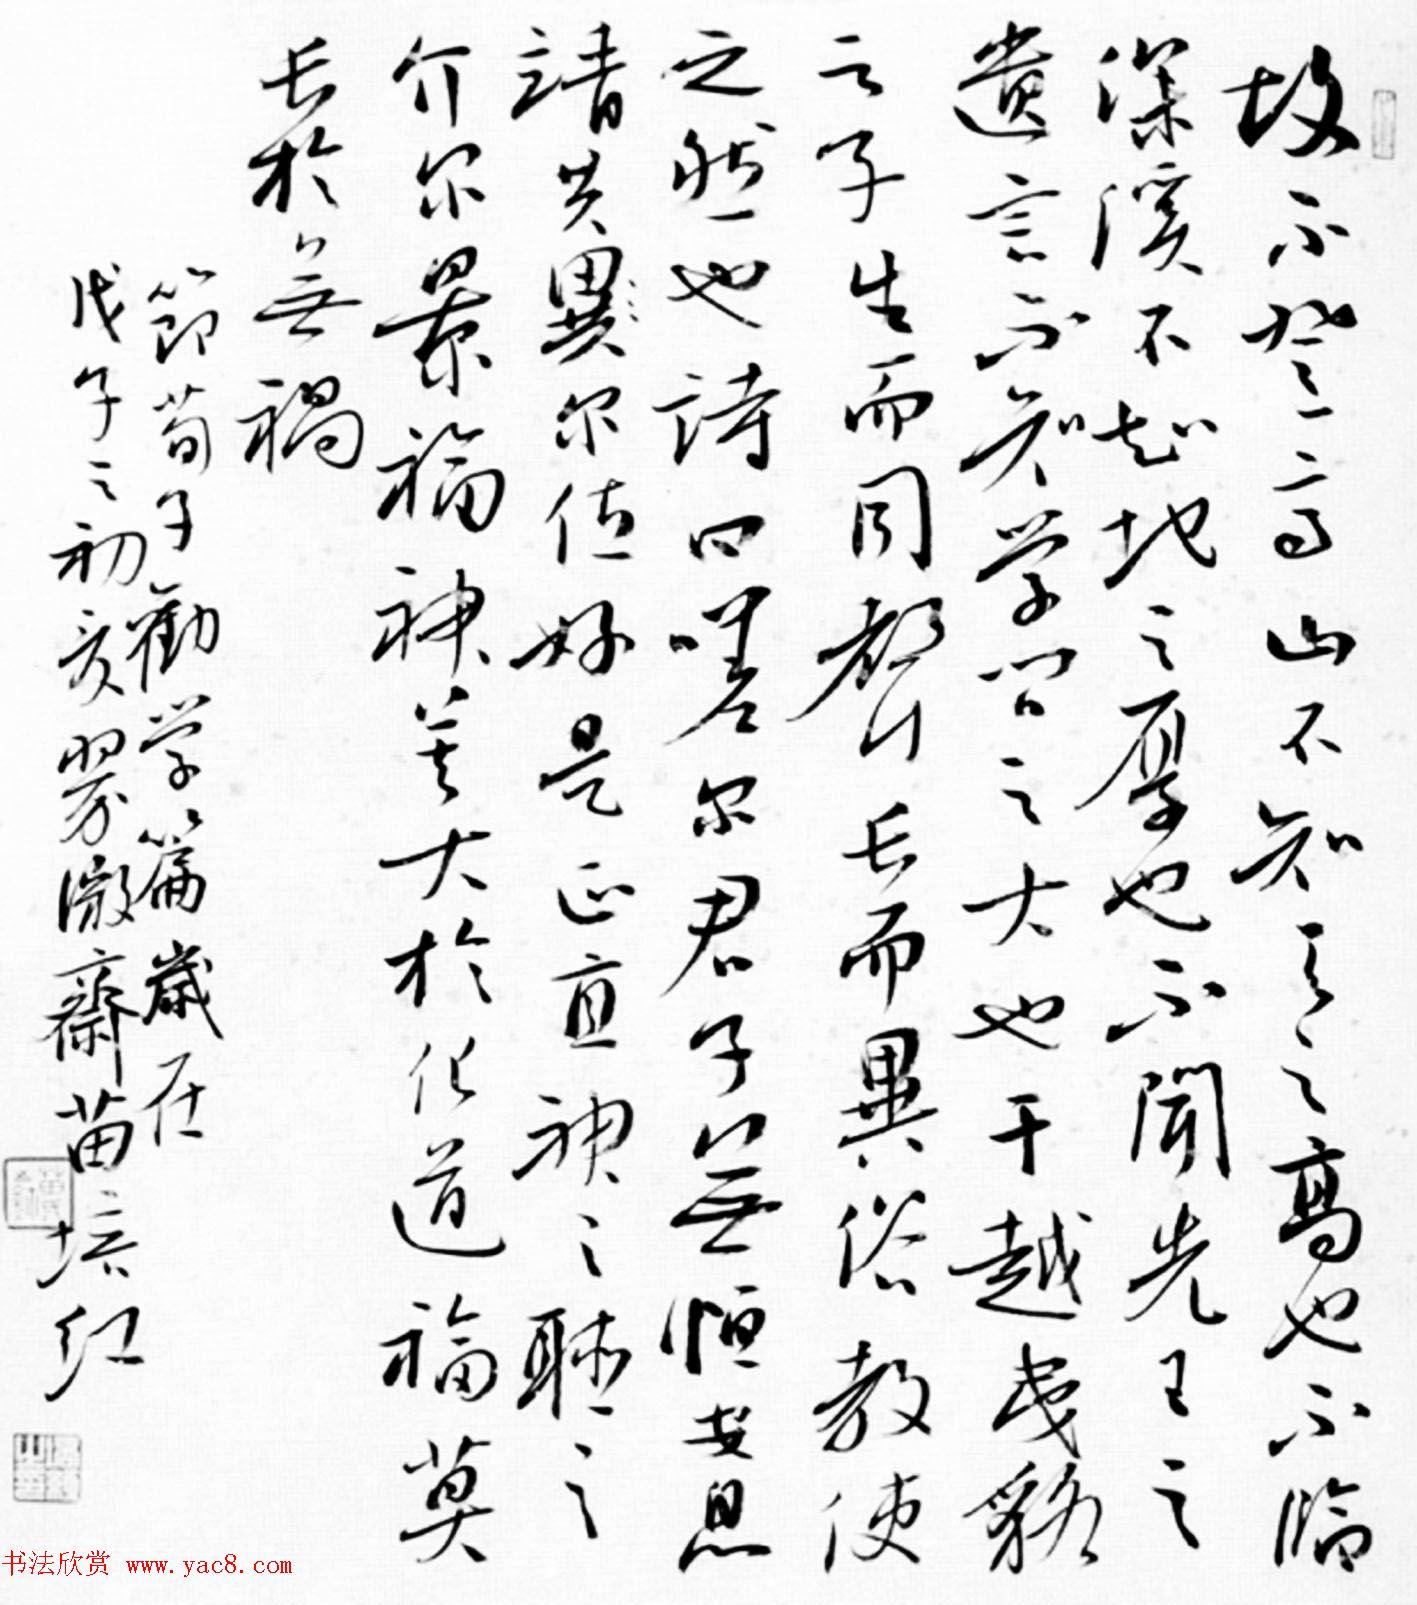 故不登高山不知天之高也不臨
深溪不知地之厚也不聞先王之
遺言不知学问之大也干越夷貉
之子生而同聲長而異俗教使
之然也詩曰嗟尔君子無恒安息
靖共異尔位好是正直神之聽之
介尔景福神莫大於化道福莫
長於無禍
節荀子勸学篇歲在
戊子之初夏翠微齋苗培红
书法欣赏 www.yac8.com